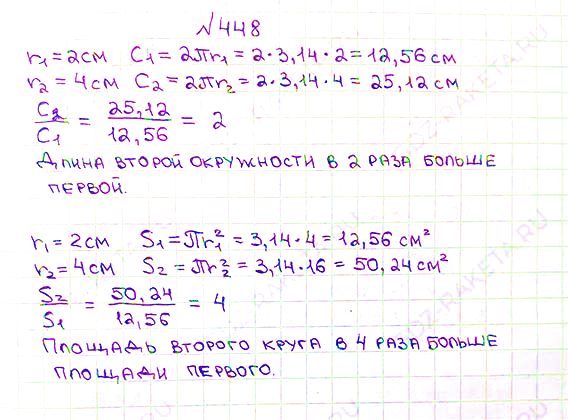 №448
r₁=2см C₁=2πr₁=2·3,14·2=12,56см
r₂=4см C₂=2πr₂=2·3,14·4=25,12см
C₂/C₁ = 25,12/12,56 = 2
Длина второй окружности в 2 раза больше
первой.
r₁=2см S₁=πr₁²=3,14·4=12,56 см²
r₂=4см S₂=πr₂²=3,14·16=50,24см²
S₂/S₁ = 50,24/12,56 = 4
Площадь второго круга в 4 раза больше
площади первого.